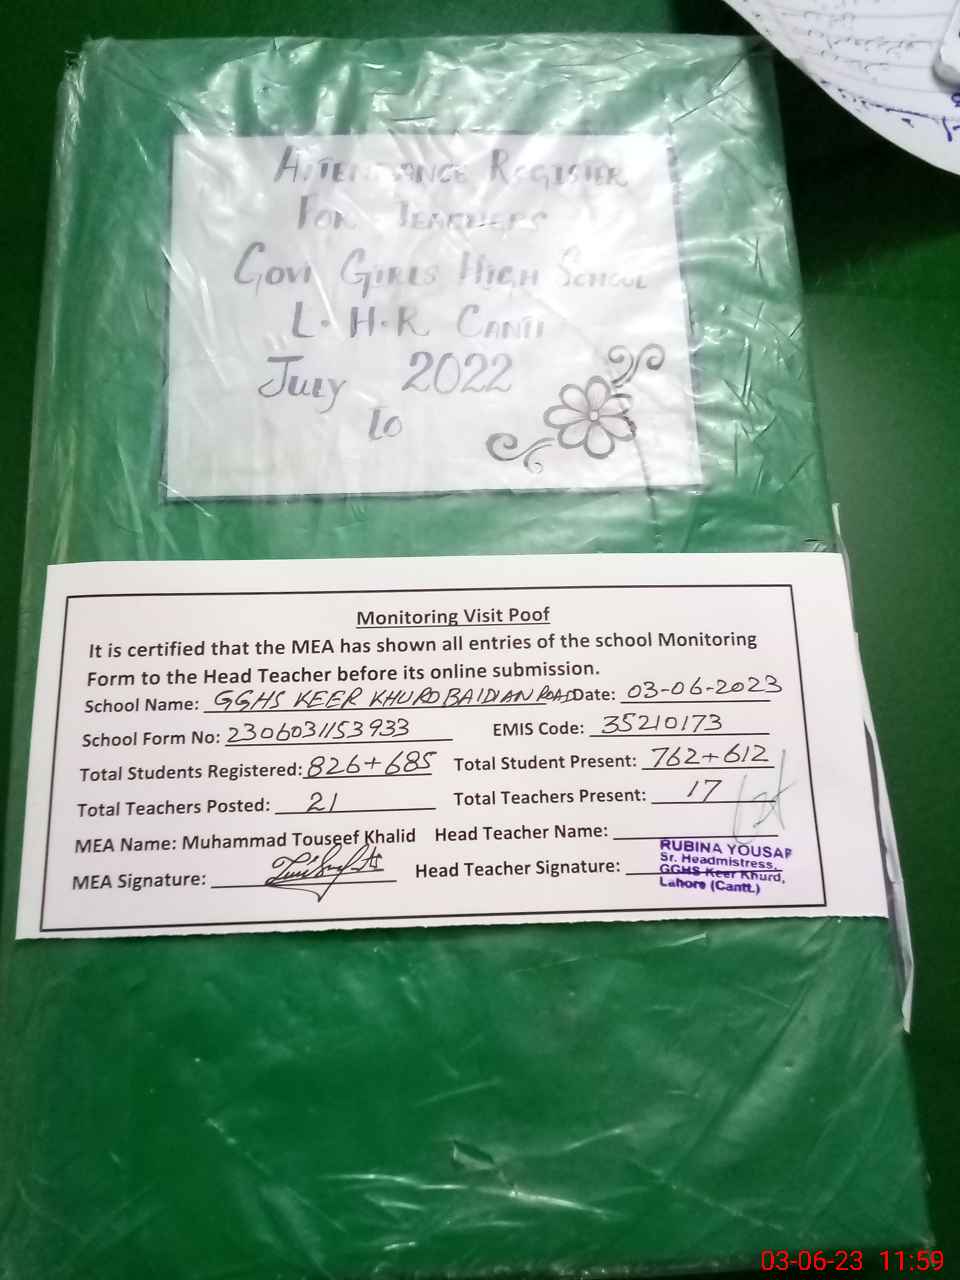 ATTENDANCE REGISTER
FOR TEACHERS
GOVT GIRLS HIGH SCHOOL
L.H.R CANTT
July 2022
to
Monitoring Visit Poof
It is certified that the MEA has shown all entries of the school Monitoring
Form to the Head Teacher before its online submission.
School Name: GGHS KEER KHURD BAIDIAN ROAD Date: 03-06-2023
School Form No: 2306031153933 EMIS Code: 35210173
Total Students Registered: 826+685 Total Student Present: 762+612
Total Teachers Posted: 21 Total Teachers Present: 17
MEA Name: Muhammad Touseef Khalid Head Teacher Name:
MEA Signature: Head Teacher Signature:
RUBINA YOUSAF
Sr. Headmistress,
GGHS Keer Khurd,
Lahore (Cantt.)
03-06-23 11:59